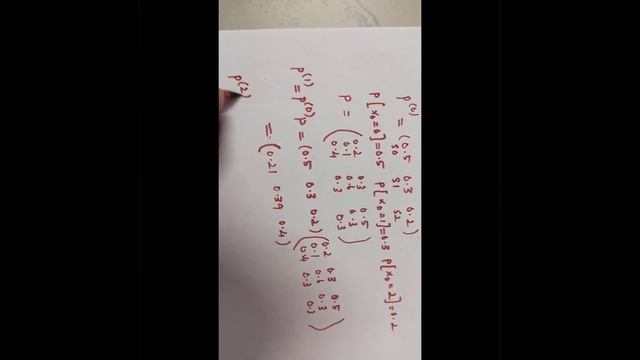 p⁽⁰⁾ = (0.5 0.3 0.2)
S0 S1 S2
P[x₀=0]=0.5 P[x₀=1]=0.3 P[x₀=2]=0.2
P = (0.2 0.3 0.5
0.1 0.6 0.3
0.4 0.3 0.3)
p⁽¹⁾ = p⁽⁰⁾P = (0.5 0.3 0.2) (0.2 0.3 0.5
0.1 0.6 0.3
0.4 0.3 0.3)
= (0.21 0.39 0.4)
p⁽²⁾